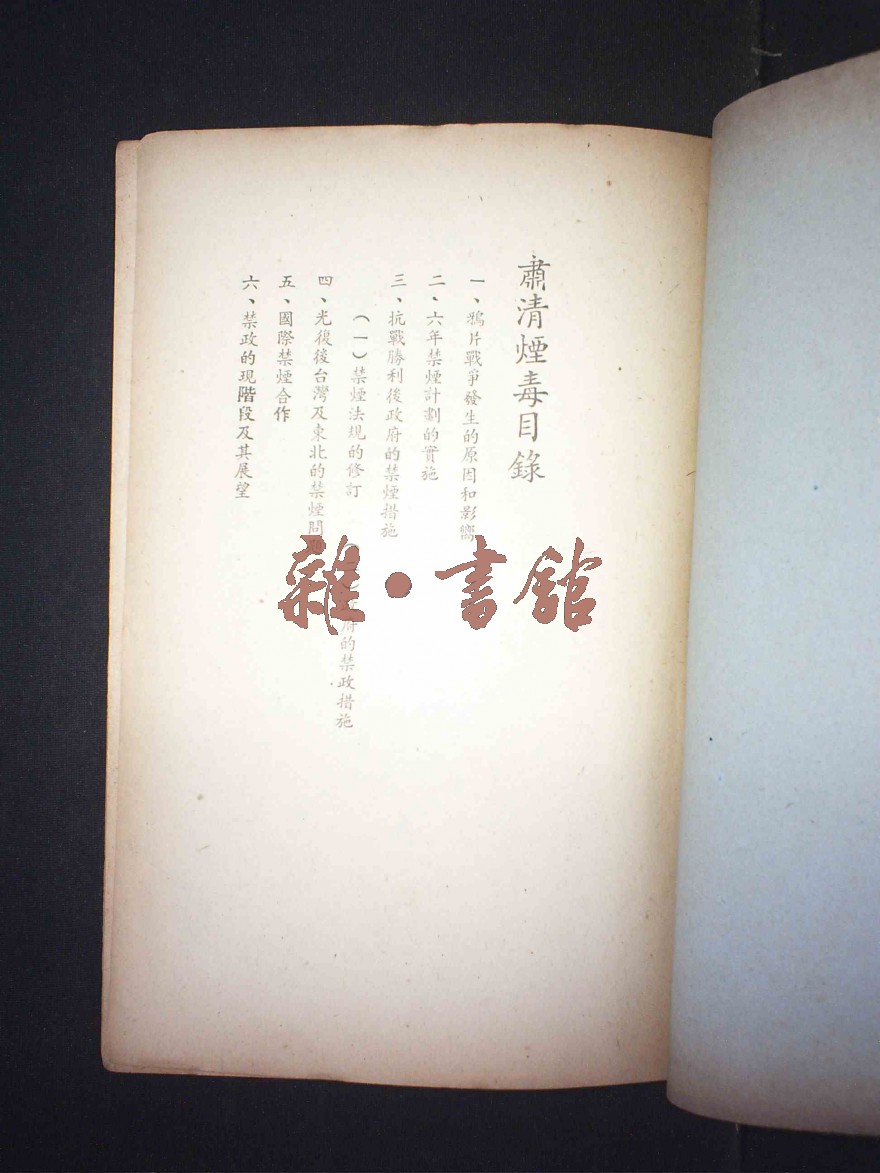 肅清煙毒目錄
一、鴉片戰爭發生的原因和影響
二、六年禁煙計劃的實施
三、抗戰勝利後政府的禁煙措施
（一）禁煙法規的修訂　府的禁政措施
四、光復後台灣及東北的禁煙問題
五、國際禁煙合作
六、禁政的現階段及其展望
雜·書館